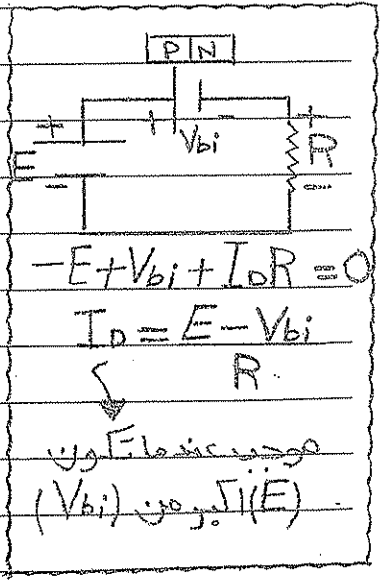 P N
+ Vbi -
E + -
R + -
-E+Vbi+I_D R = 0
I_D = E - Vbi
R
موجب عندما تكون
(E) اكبر من (Vbi)